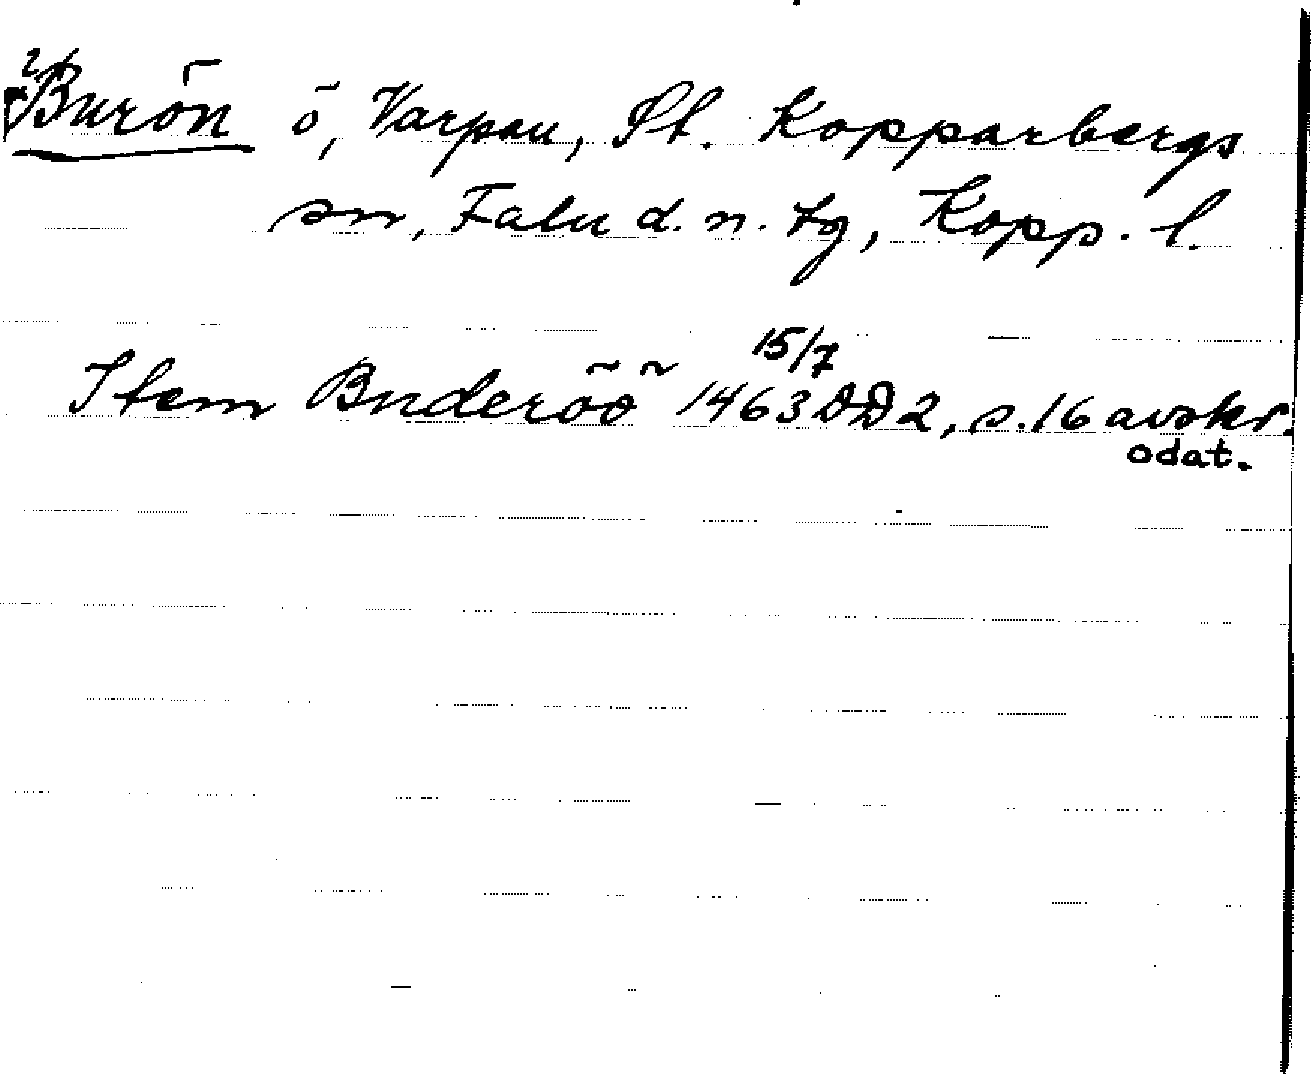 Burön ö, Varpan, St. Kopparbergs
sn, Falu d. n. tg, Kopp. l.
15/7
Item Buderöö 1463 DD2, s. 16 avskr.
odat.